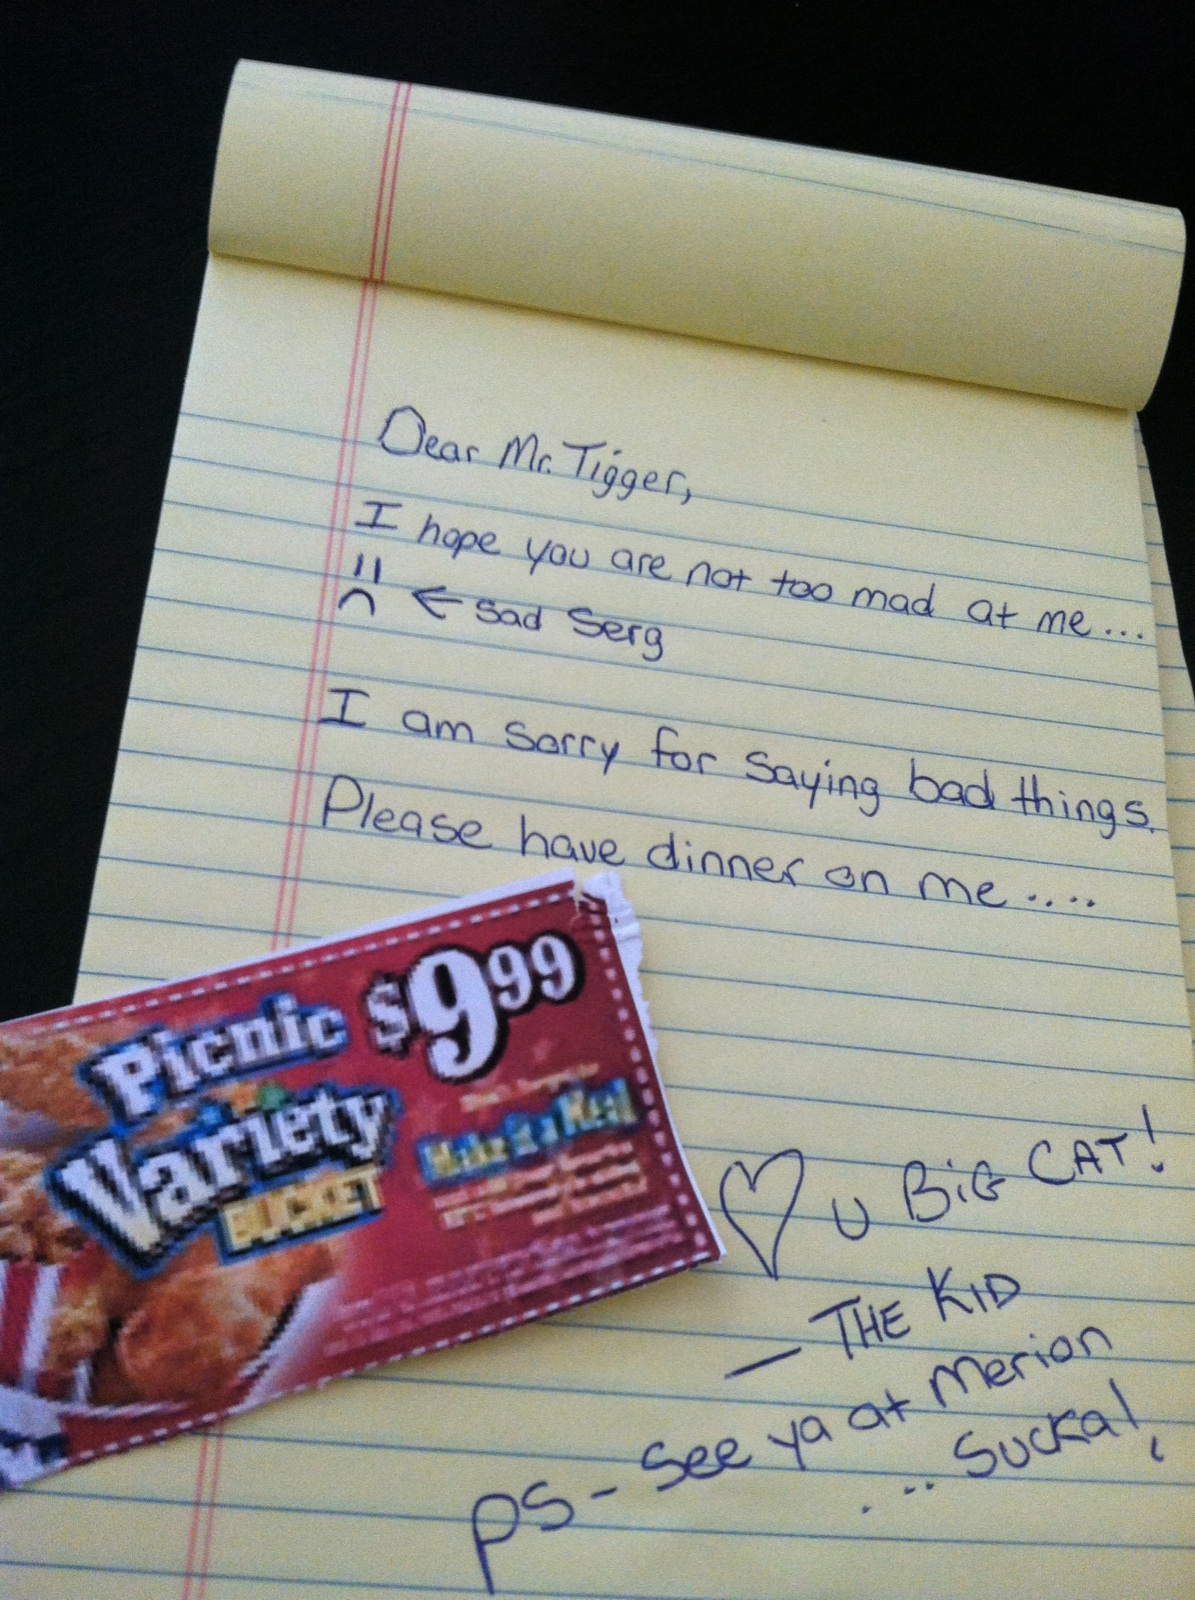 Dear Mr. Tigger,
I hope you are not too mad at me...
← Sad Serg
I am sorry for saying bad things.
Please have dinner on me....
Picnic
Variety
BUCKET
$9.99
Make it a Meal
♡ U BiG CAT!
— THE KID
PS - See ya at Merion
... Sucka!